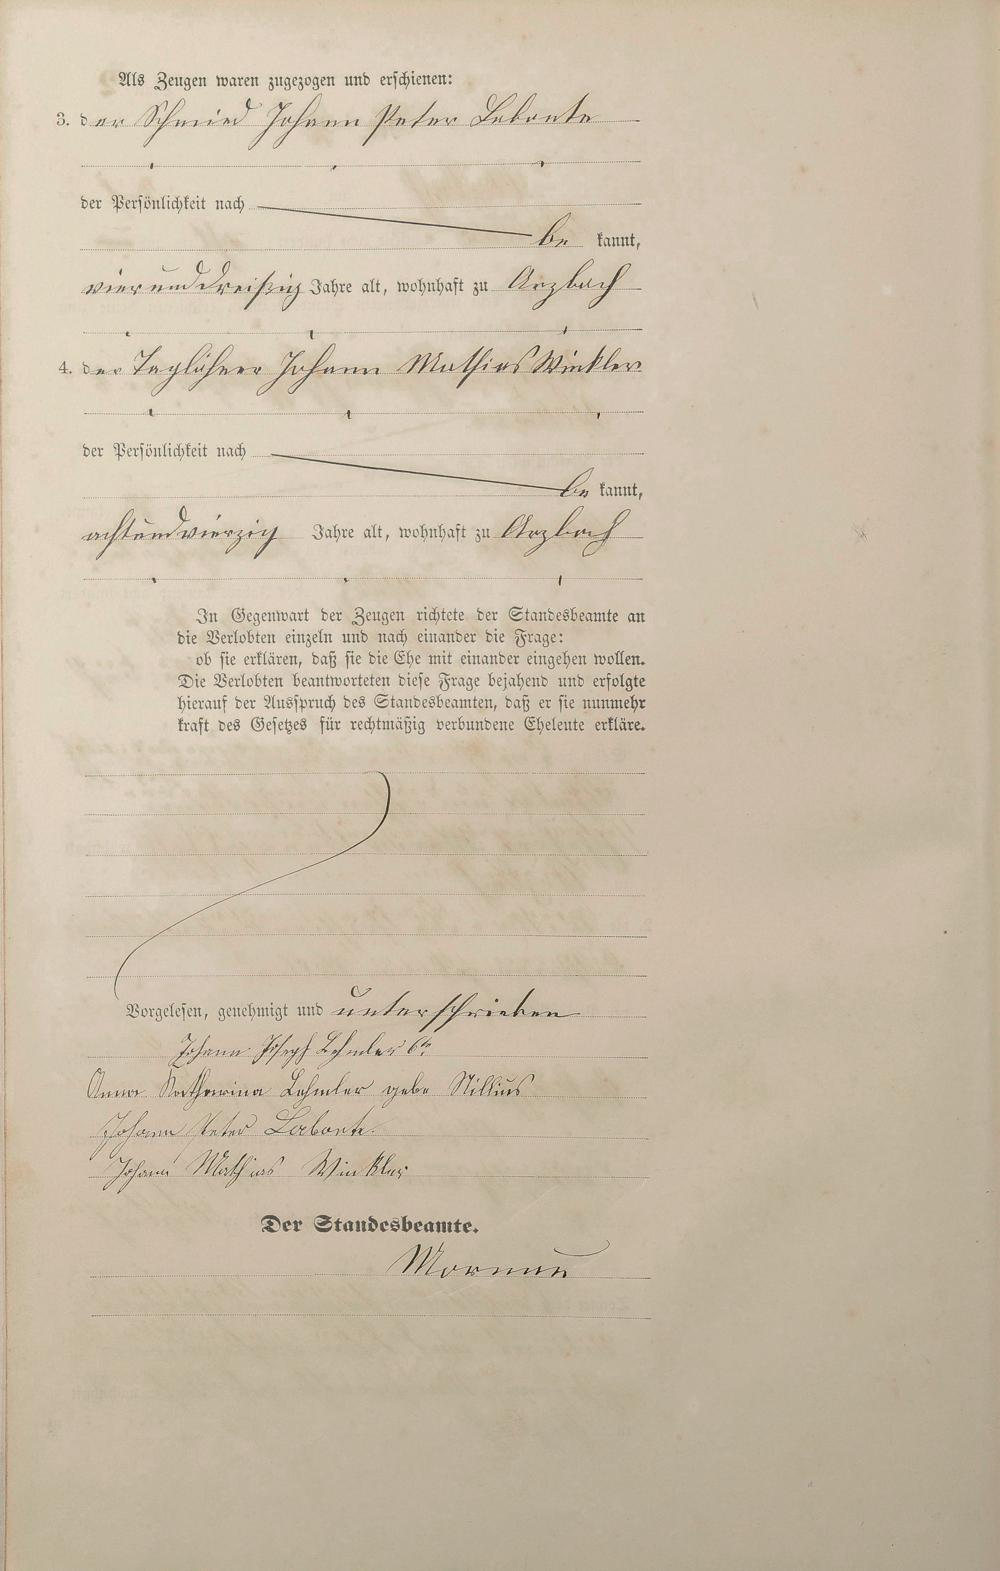 Als Zeugen waren zugezogen und erschienen:
3. der Schmied Johann Peter Labonte
der Persönlichkeit nach
be kannt,
vierunddreißig Jahre alt, wohnhaft zu Arzbach
4. der Taglöhner Johann Mathias Winkler
der Persönlichkeit nach
be kannt,
achtundvierzig Jahre alt, wohnhaft zu Arzbach
In Gegenwart der Zeugen richtete der Standesbeamte an
die Verlobten einzeln und nach einander die Frage:
ob sie erklären, daß sie die Ehe mit einander eingehen wollen.
Die Verlobten beantworteten diese Frage bejahend und erfolgte
hierauf der Ausspruch des Standesbeamten, daß er sie nunmehr
kraft des Gesetzes für rechtmäßig verbundene Eheleute erkläre.
Vorgelesen, genehmigt und unterschrieben
Johann Joseph Lehmler 6te
Anna Katharina Lehmler gebe Stillius
Johann Peter Labonte.
Johann Mathias Winkler
Der Standesbeamte.